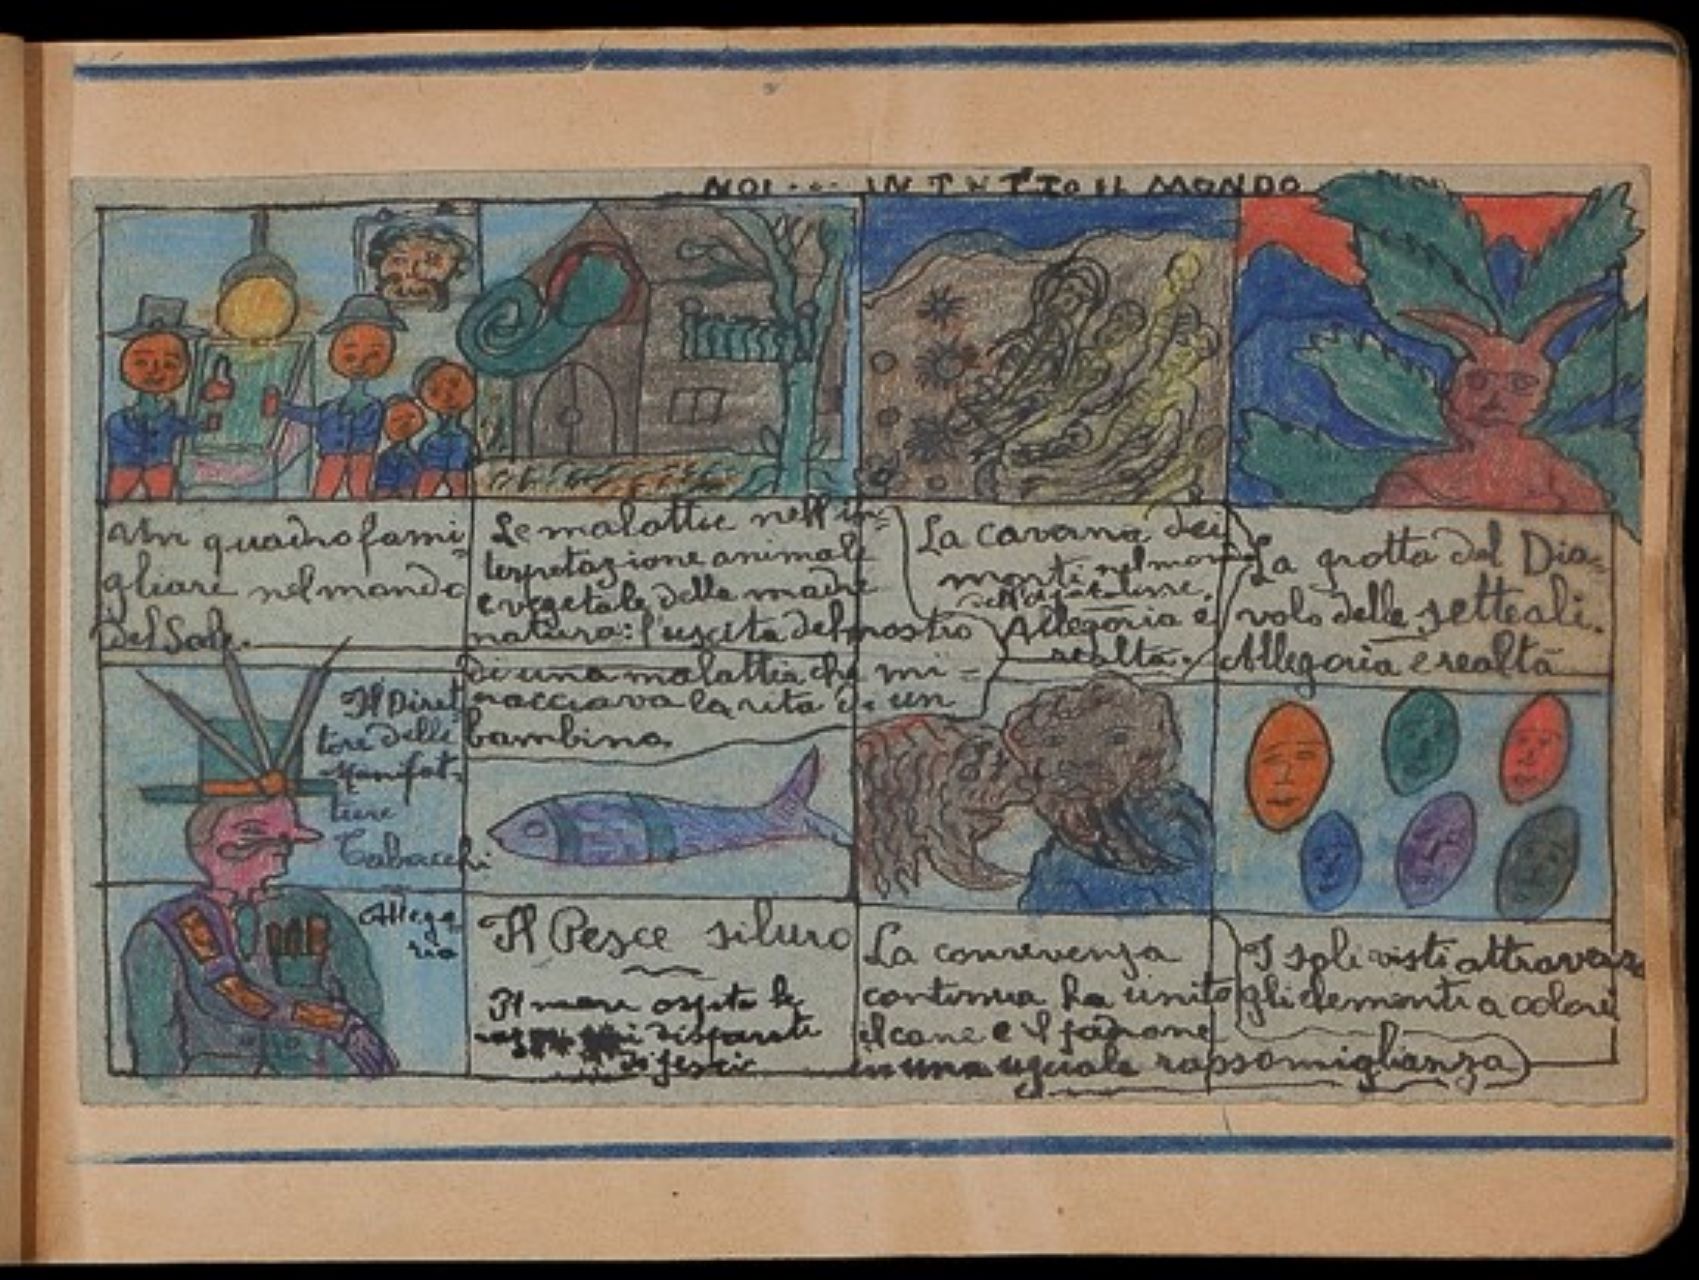 NOI ... IN TUTTO IL MONDO
Un quadro fami=
gliare nel mondo
del Sole.
Le malattie nell'in=
terpretazione animale
e vegetale della madre
natura: l'uscita del mostro
di una malattia che mi=
nacciava la vita di un
bambino.
La caverna dei
morti nel mon
Allegoria e
realtà.
La grotta del Dia=
volo delle setteali.
Allegoria e realtà
Il Diret
tore delle
Manifat=
ture
Tabacchi
Allego
ria
Il Pesce siluro
Il mare ospita le
disparate
di pesci
La convivenza
continua ha unito
il cane e il padrone
in una uguale rassomiglianza
I soli visti attraverso
gli elementi a colori